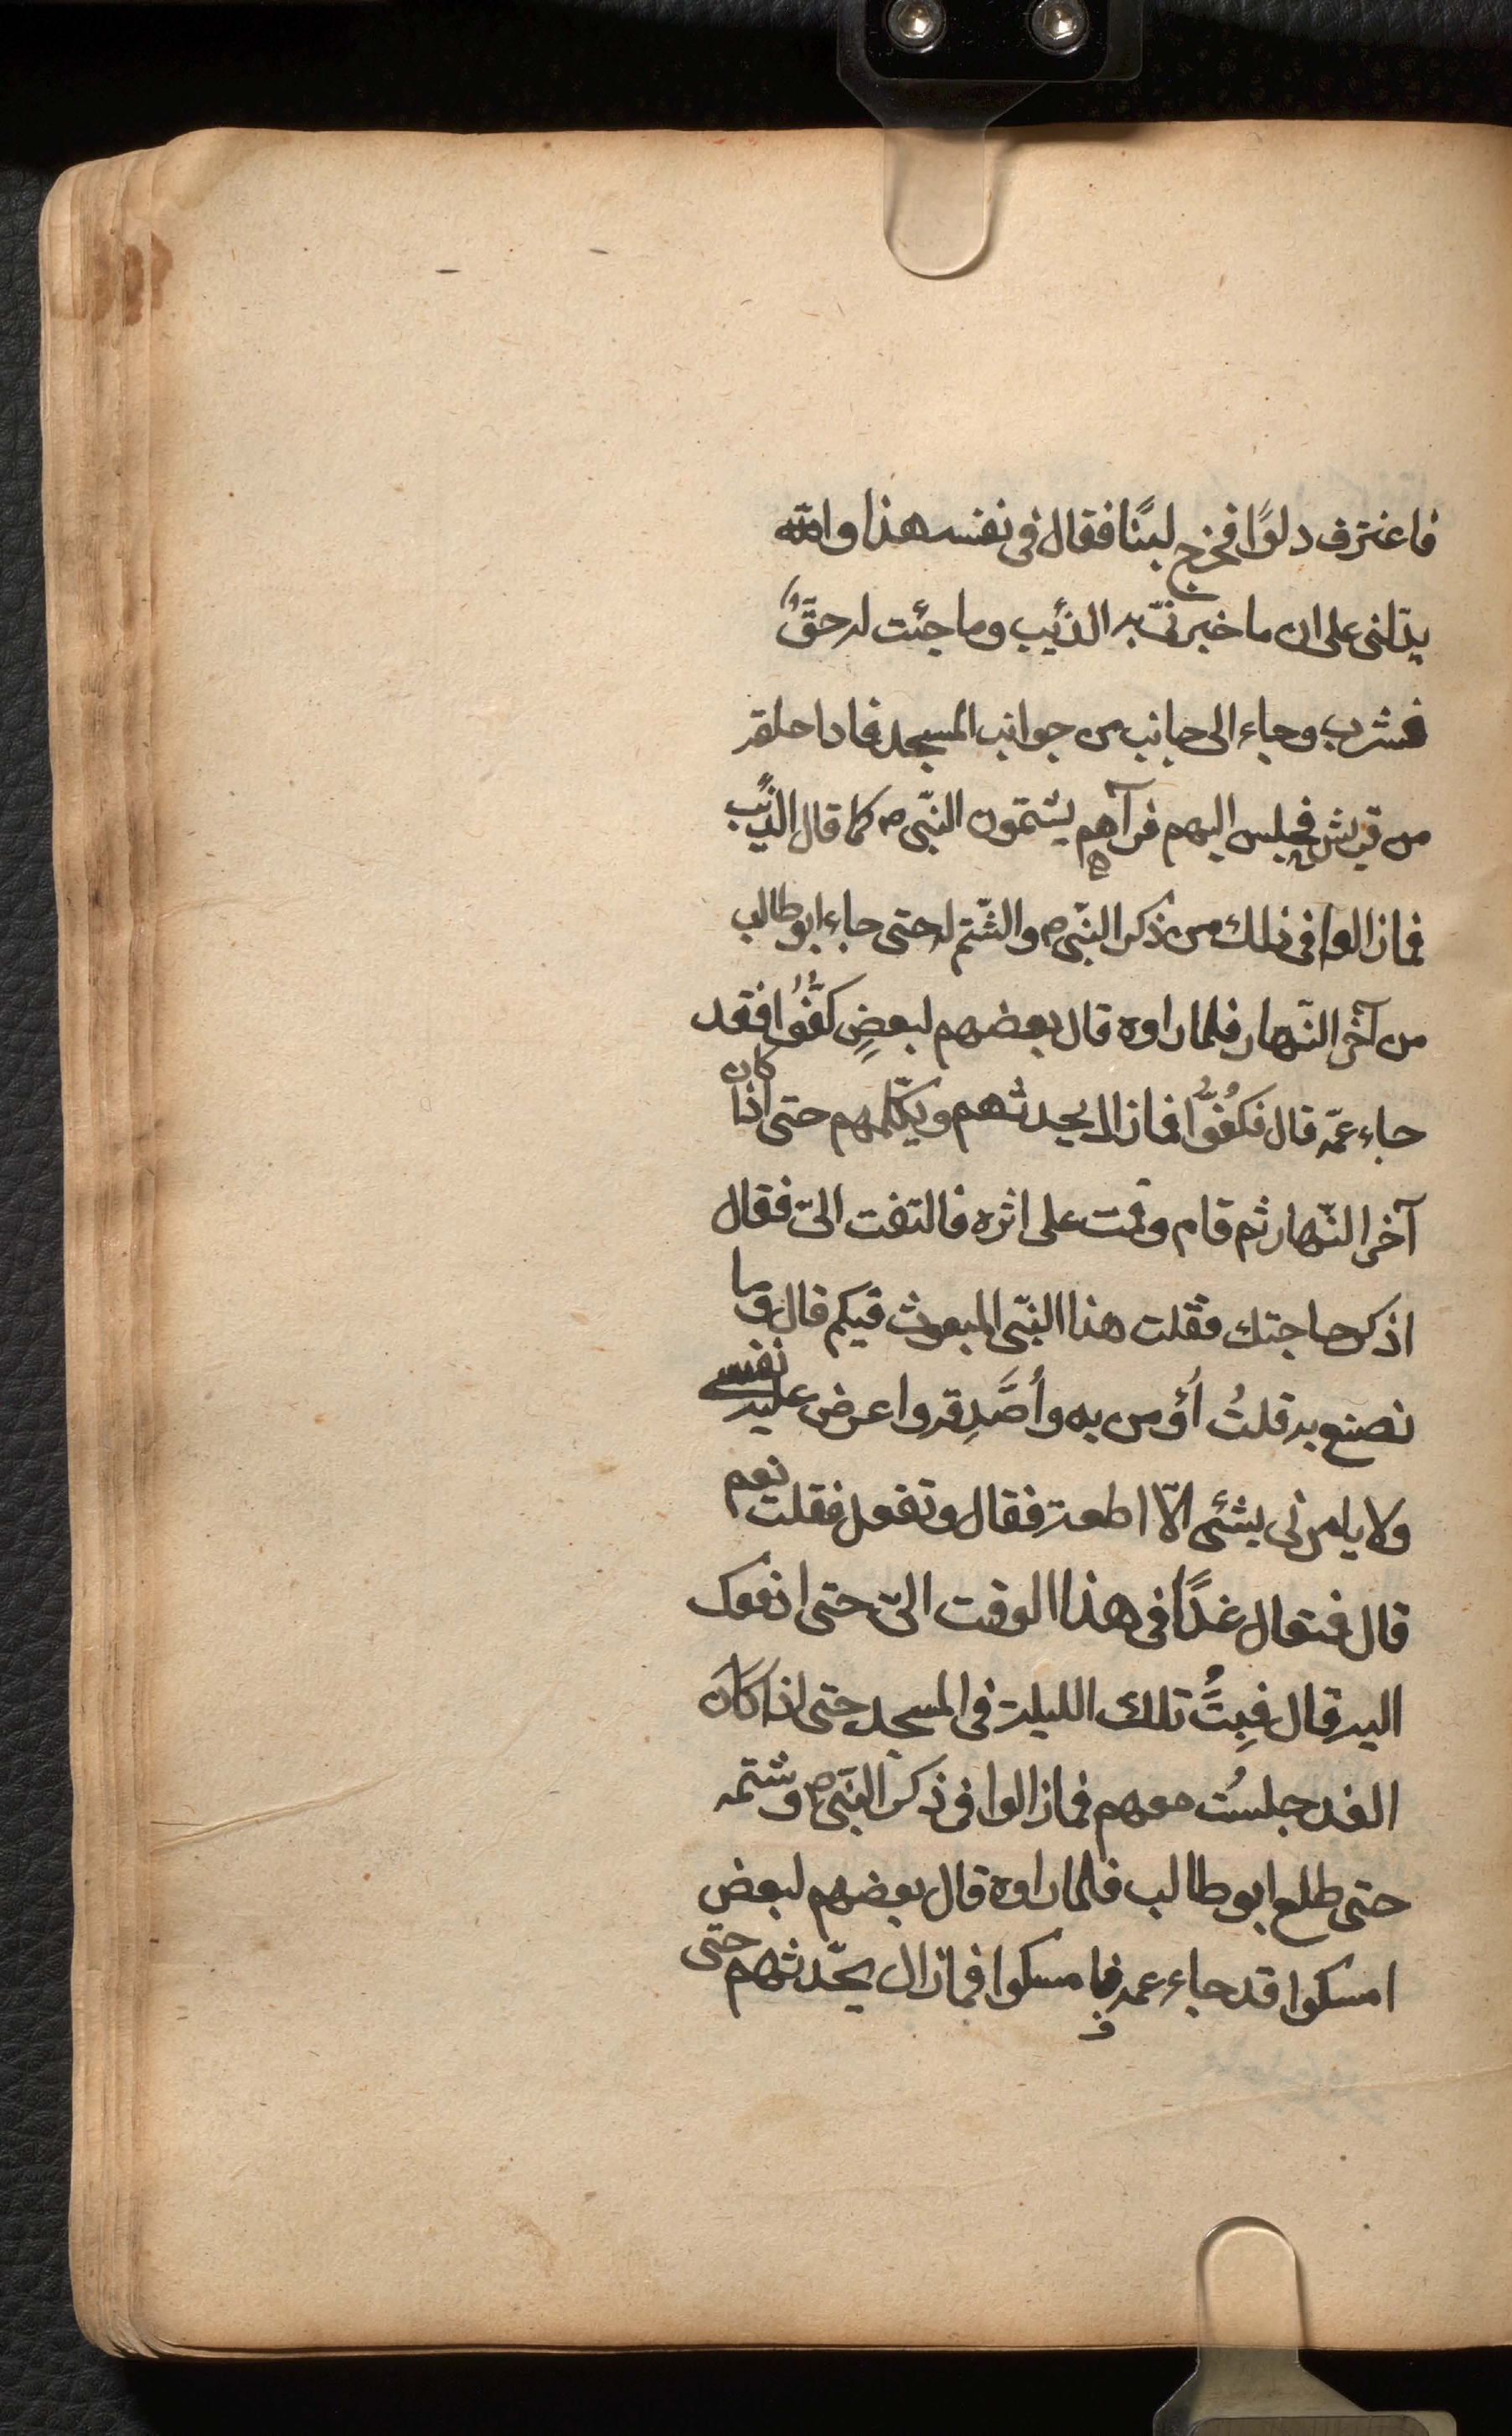 فاغترف دلوًا فخرج لبنًا فقال فى نفسه هذا والله
يدّلنى على ان ما خبرنىّ به الذئيب وما جئت له حقٌّ
فشرب وجاء الى جانب من جوانب المسجد فاذا حلقة
من قريش فجلس اليهم فرآهم يشتمون النّبى ص كما قال الذئب
فما زالوا فى ذلك من ذكر النّبى ص والشّتم له حتى جاء ابو طالب
من آخر النّهار فلما راوه قال بعضهم لبعضٍ كفُّوا فقد
جاء عمّه قال فكُفوُّا فما زال يحدثهم ويكلّمهم حتى اذا كان
آخر النّهار ثم قام وقمت على اثره فالتفت الىّ فقال
اذكر حاجتك فقلت هذا النّبى المبعوث فيكم قال وما
تصنع به قلتُ أؤمن به وأصَّدِقه واعرض عليه نفسى
ولا يامرنى بشئى الّا اطعته فقال وتفعل فقلت نعم
قال فتعال غدًا فى هذا الوقت الىّ حتى ادفعك
اليه قال فبِتُّ تلك الليلة فى المسجد حتى اذا كان
الغد جلستُ معهم فما زالوا فى ذكر النّبى ص وشتمه
حتى طلع ابو طالب فلما راوه قال بعضهم لبعض
امسكوا قد جاء عمه فامسكوا فما زال يحّدثهم حتى